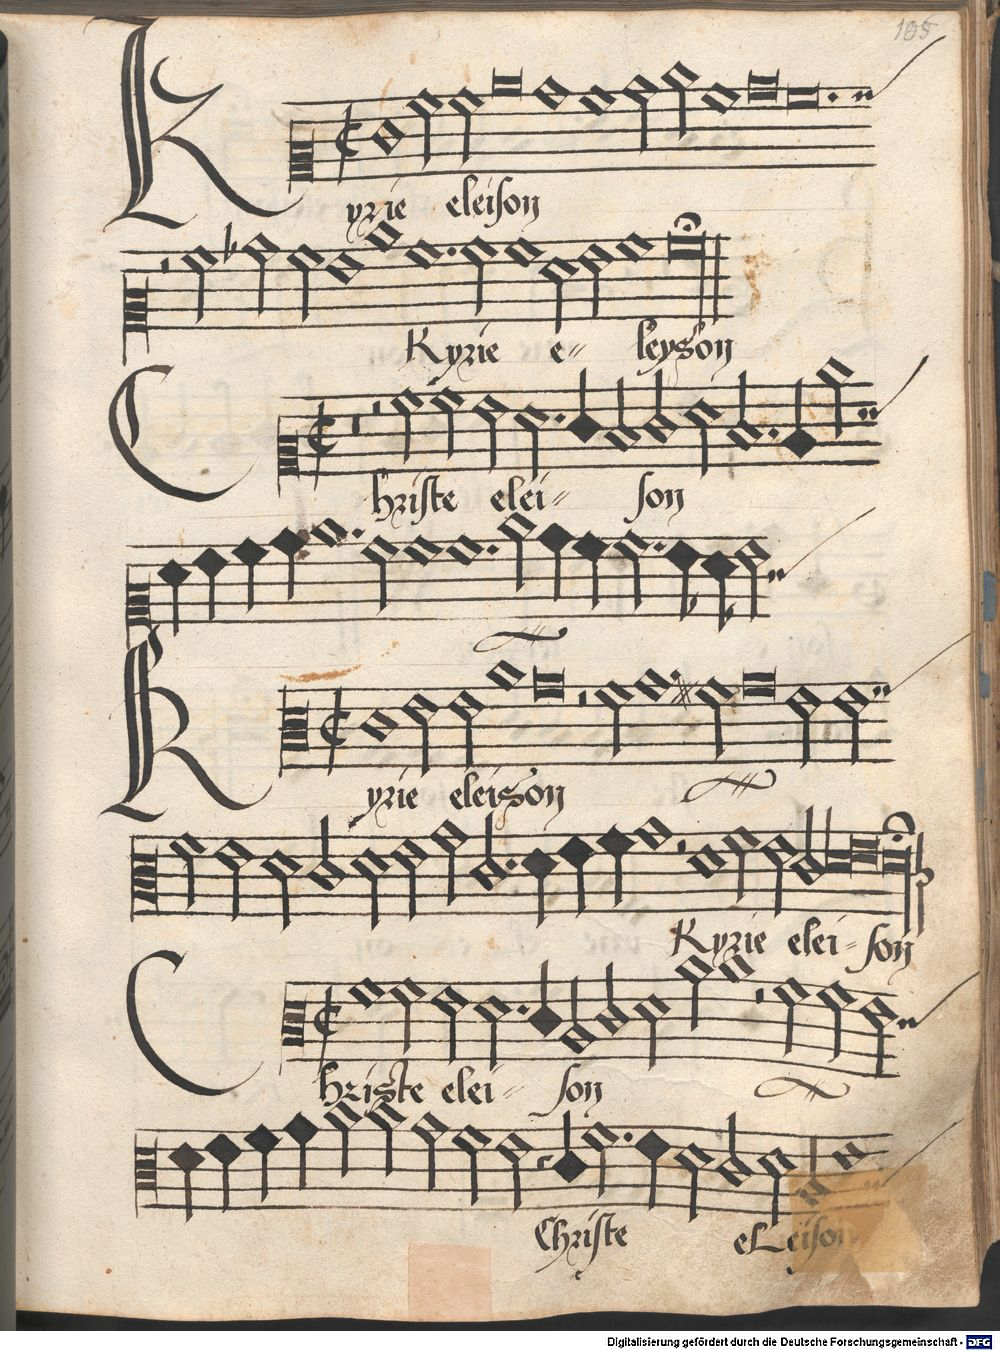 105
Kyrie eleison
Kyrie e- leyson
Christe elei- son
Kyrie eleison
Kyrie elei- son
Christe elei- son
Christe eLeison
Digitalisierung gefördert durch die Deutsche Forschungsgemeinschaft - DFG